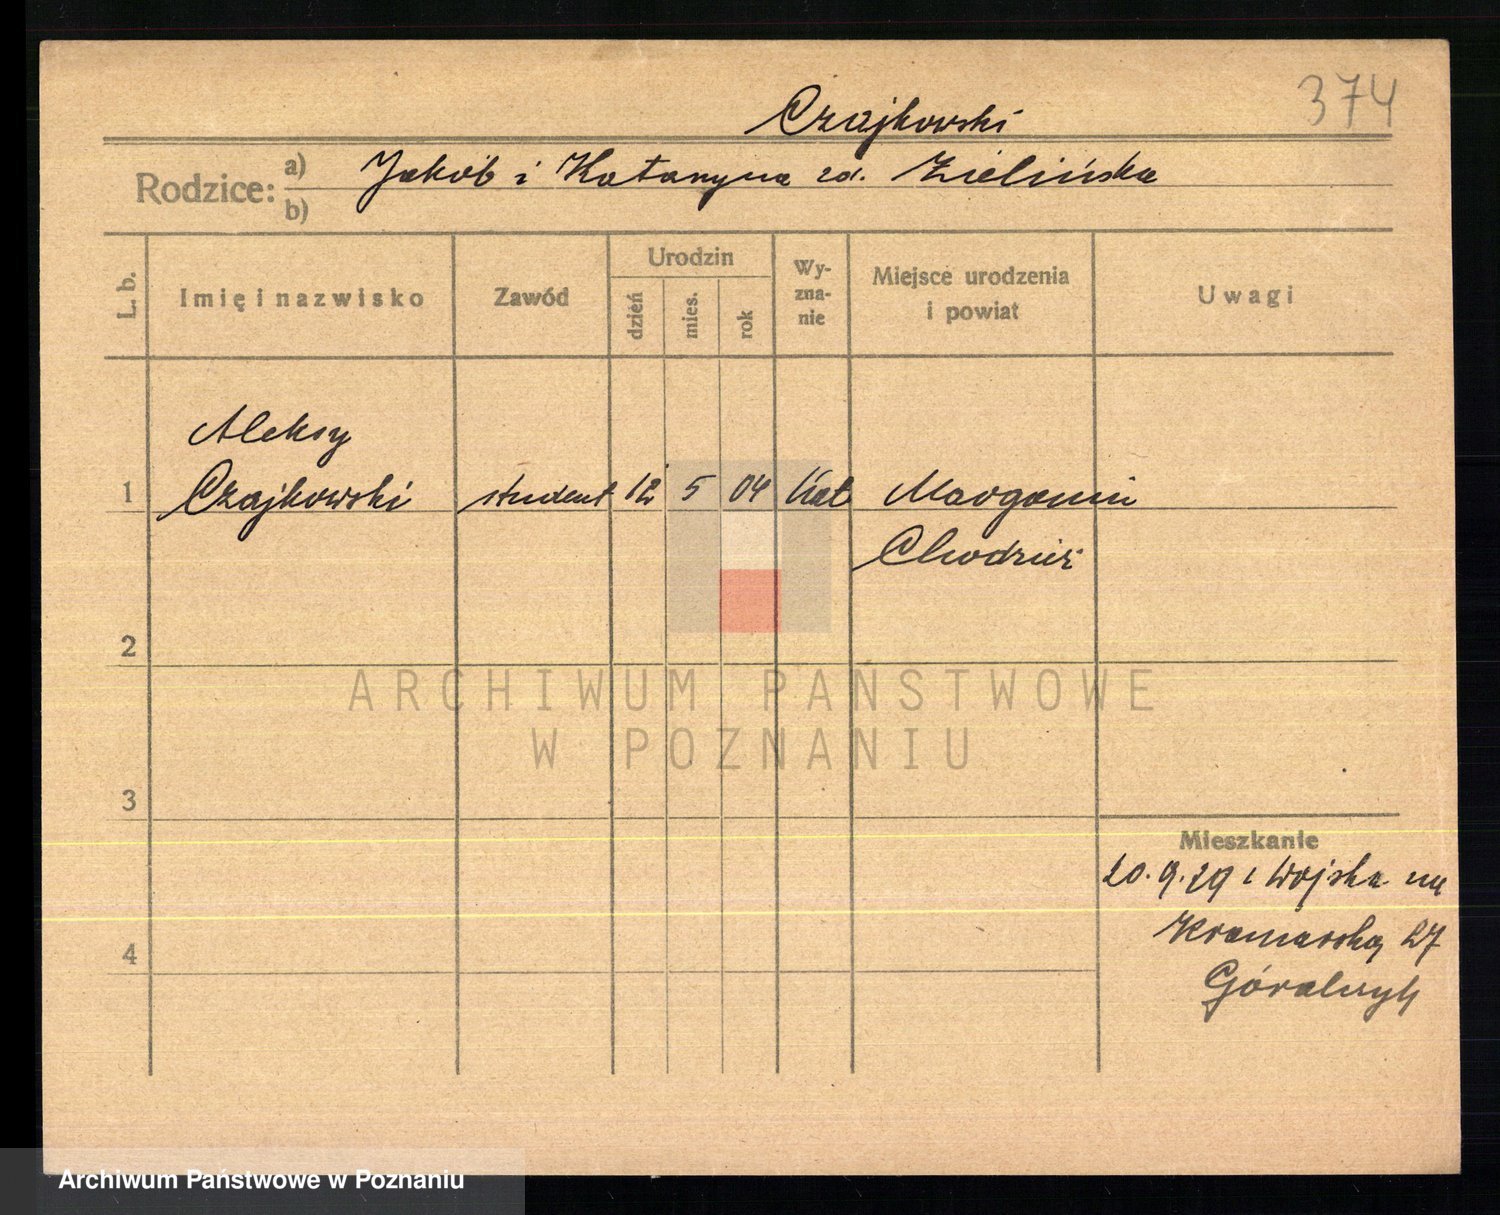 374
Czajkowski
Rodzice: a) Jakób i Katarzyna zd. Zielińska
b)
L. b. Imię i nazwisko Zawód Urodzin dzień mies. rok Wyznanie Miejsce urodzenia i powiat Uwagi
Aleksy
1 Czajkowski student 12 5 04 kat Margonin
Chodzież
2
ARCHIWUM PAŃSTWOWE
W POZNANIU
3
Mieszkanie
20.9.29 z Wojska na
Kramarską 27
4
Góralczyk
Archiwum Państwowe w Poznaniu